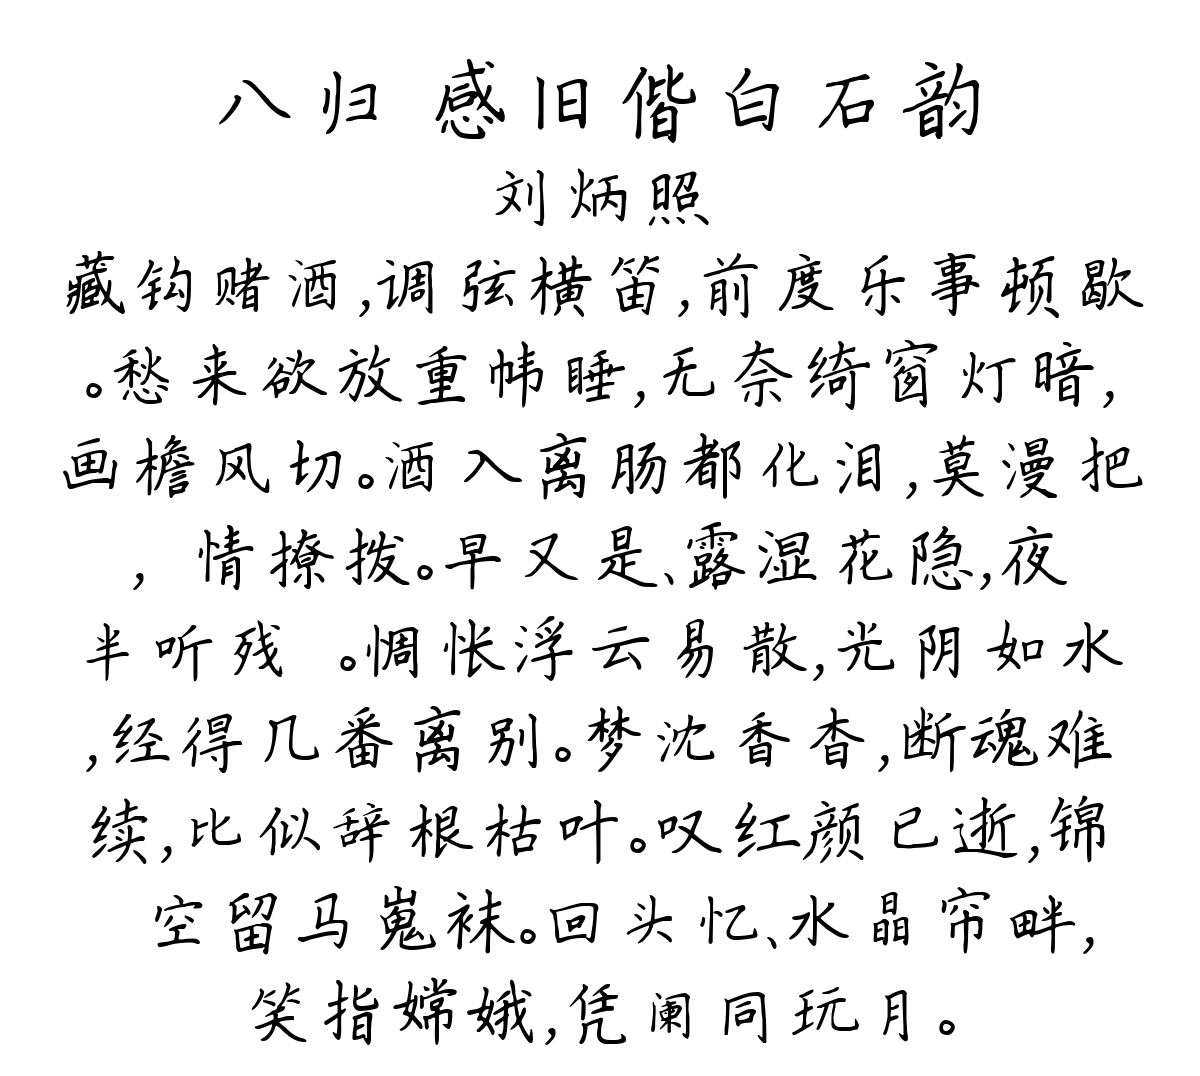 八归 感旧偕白石韵
刘炳照
藏钩赌酒,调弦横笛,前度乐事顿歇
。愁来欲放重帏睡,无奈绮窗灯暗,
画檐风切。酒入离肠都化泪,莫漫把
, 情撩拨。早又是、露湿花隐,夜
半听残 。惆怅浮云易散,光阴如水
,经得几番离别。梦沈香杳,断魂难
续,比似辞根枯叶。叹红颜已逝,锦
空留马嵬袜。回头忆、水晶帘畔,
笑指嫦娥,凭阑同玩月。